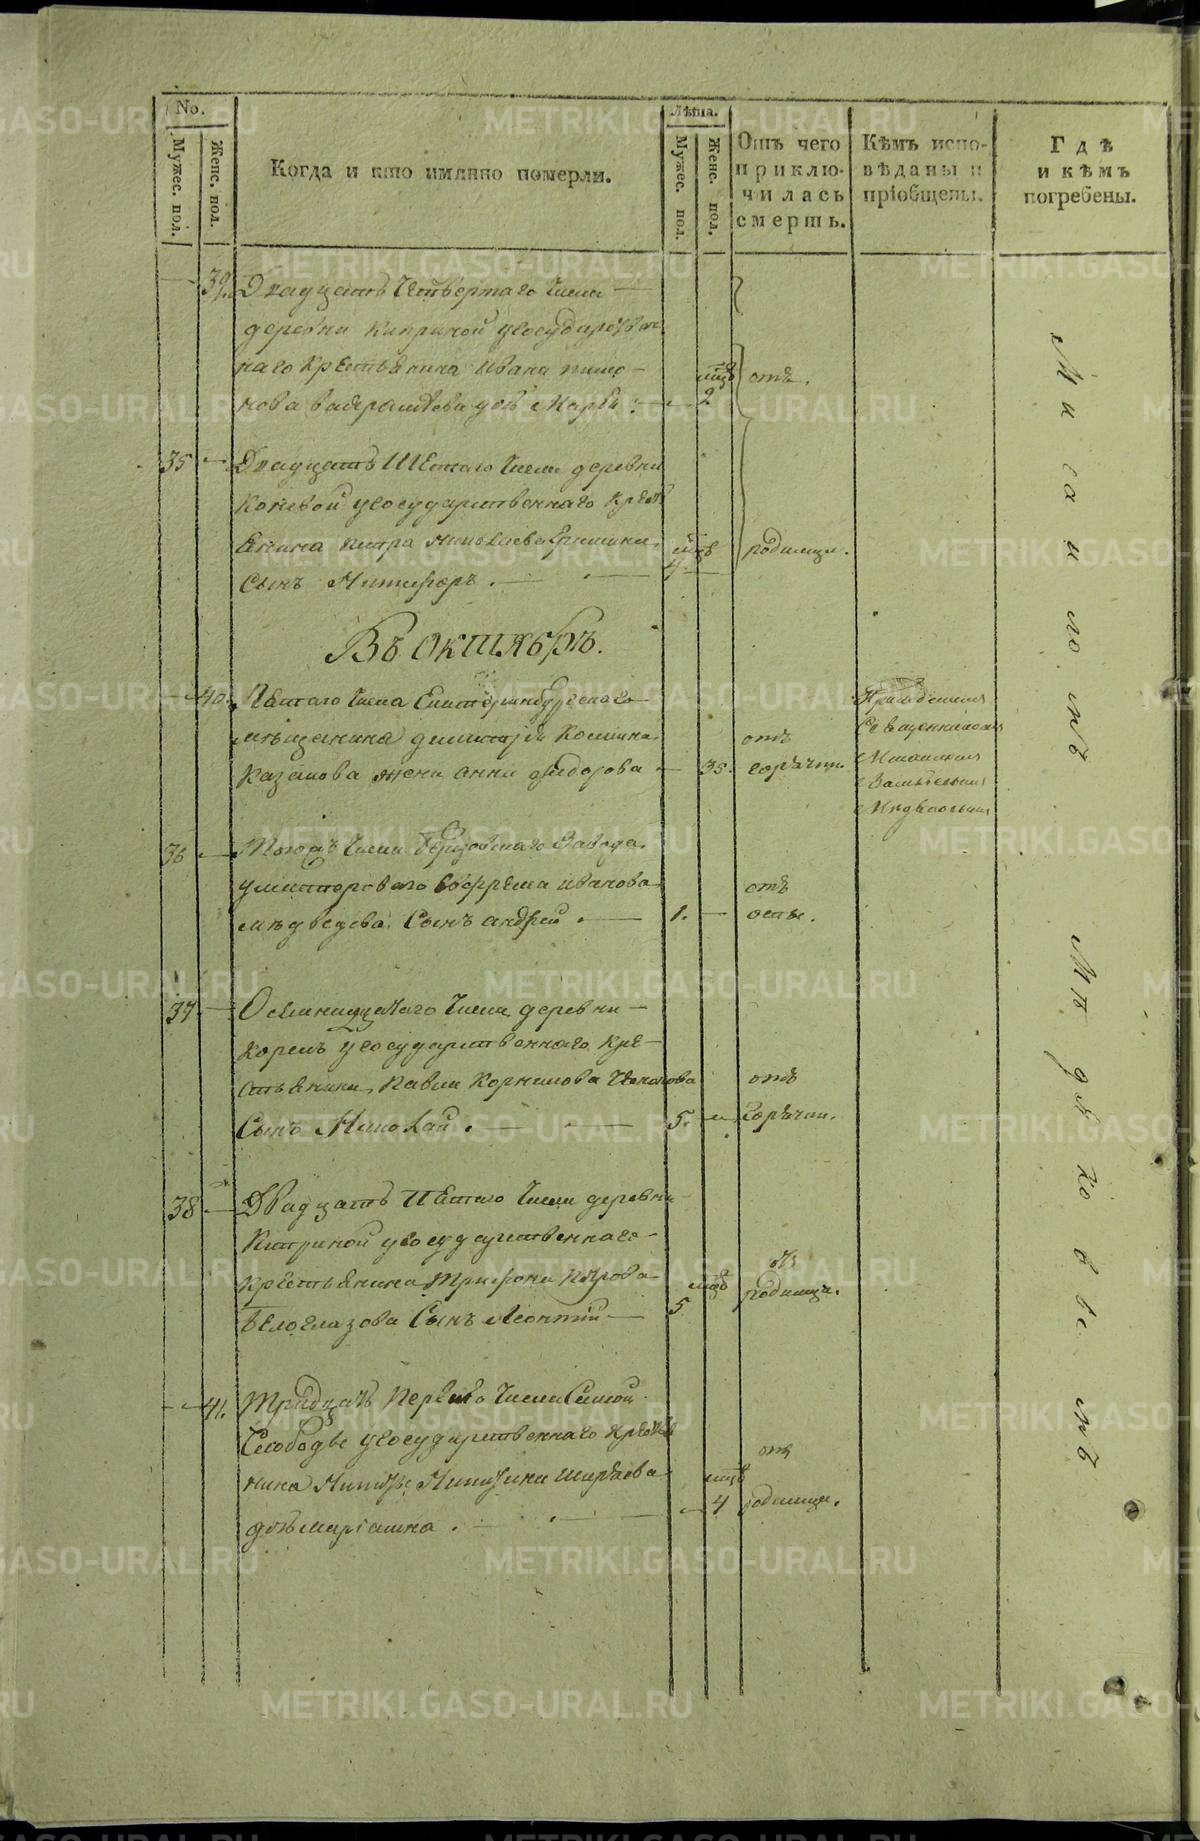 No.
Мужес. пол.
Женс. пол.
Когда и кто имянно померли.
Лѣта.
Мужес. пол.
Женс. пол.
Отъ чего
приклю-
чилась
смерть.
Кѣмъ испо-
вѣданы и
пріобщены.
Гдѣ
и кѣмъ
погребены.
39. Двадцать Четвертаго Числа
деревни Киприной угосударствен
наго Крестьянина Ивана
дочь Марья 2 отъ
35 Двадцать Шестаго Числа деревни
Коневой угосударственнаго Крест
янина Петра Николаева
Сынъ Никифоръ. родимца.
Въ октябрѣ.
40. Пятаго Числа Екатеринбургскаго
мѣщанина Димитрія Козмина
Казанова жена Анна Федорова 35. отъ горячки.
Священникомъ
36 Тогожъ Числа Березовскаго Завода
умастероваго Ефрема Иванова
Медведева Сынъ Андрей. 1. отъ оспы.
37 Осмнадцатаго Числа деревни
угосударственнаго Кре-
стьянина Павла Корнилова
Сынъ Николай. 5. отъ горячки.
38 Двадцать Пятаго Числа деревни
Киприной угосударственнаго
Крестьянина Трифона Петрова
Белоглазова Сынъ Леонтій 5 отъ родимца.
41. Тридцать Перваго Числа Самой
Слободы угосударственнаго Крестья
нина Никиты Никитина Ширяева
дочь Маріамна. 4 отъ родимца.
METRIKI.GASO-URAL.RU